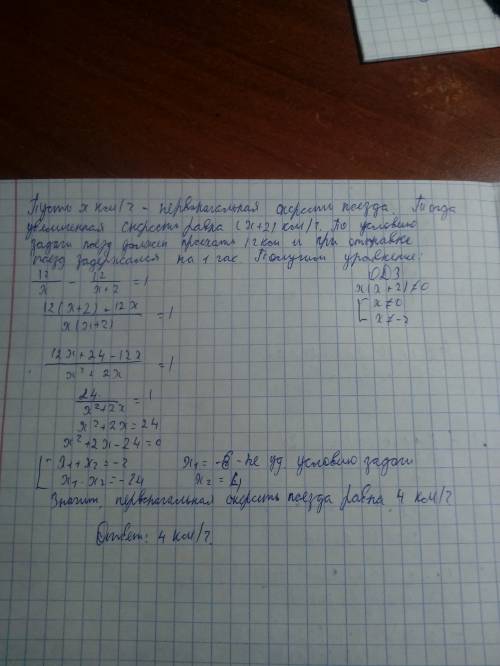 Пусть x км/ч - первоначальная скорость поезда. Тогда
увеличенная скорость равна (x+2) км/ч. По условию
задачи поезд должен проехать 12 км и при отправке
поезд задержался на 1 час. Получим уравнение:
12/x - 12/(x+2) = 1
ОДЗ
x(x+2)≠0
[x≠0
x≠-2
(12(x+2)-12x)/(x(x+2)) = 1
(12x+24-12x)/(x²+2x) = 1
24/(x²+2x) = 1
x²+2x=24
x²+2x-24=0
[x₁+x₂=-2 x₁=-6 - не уд. условию задачи
x₁·x₂=-24 x₂=4
Значит, первоначальная скорость поезда равна 4 км/ч
Ответ: 4 км/ч.